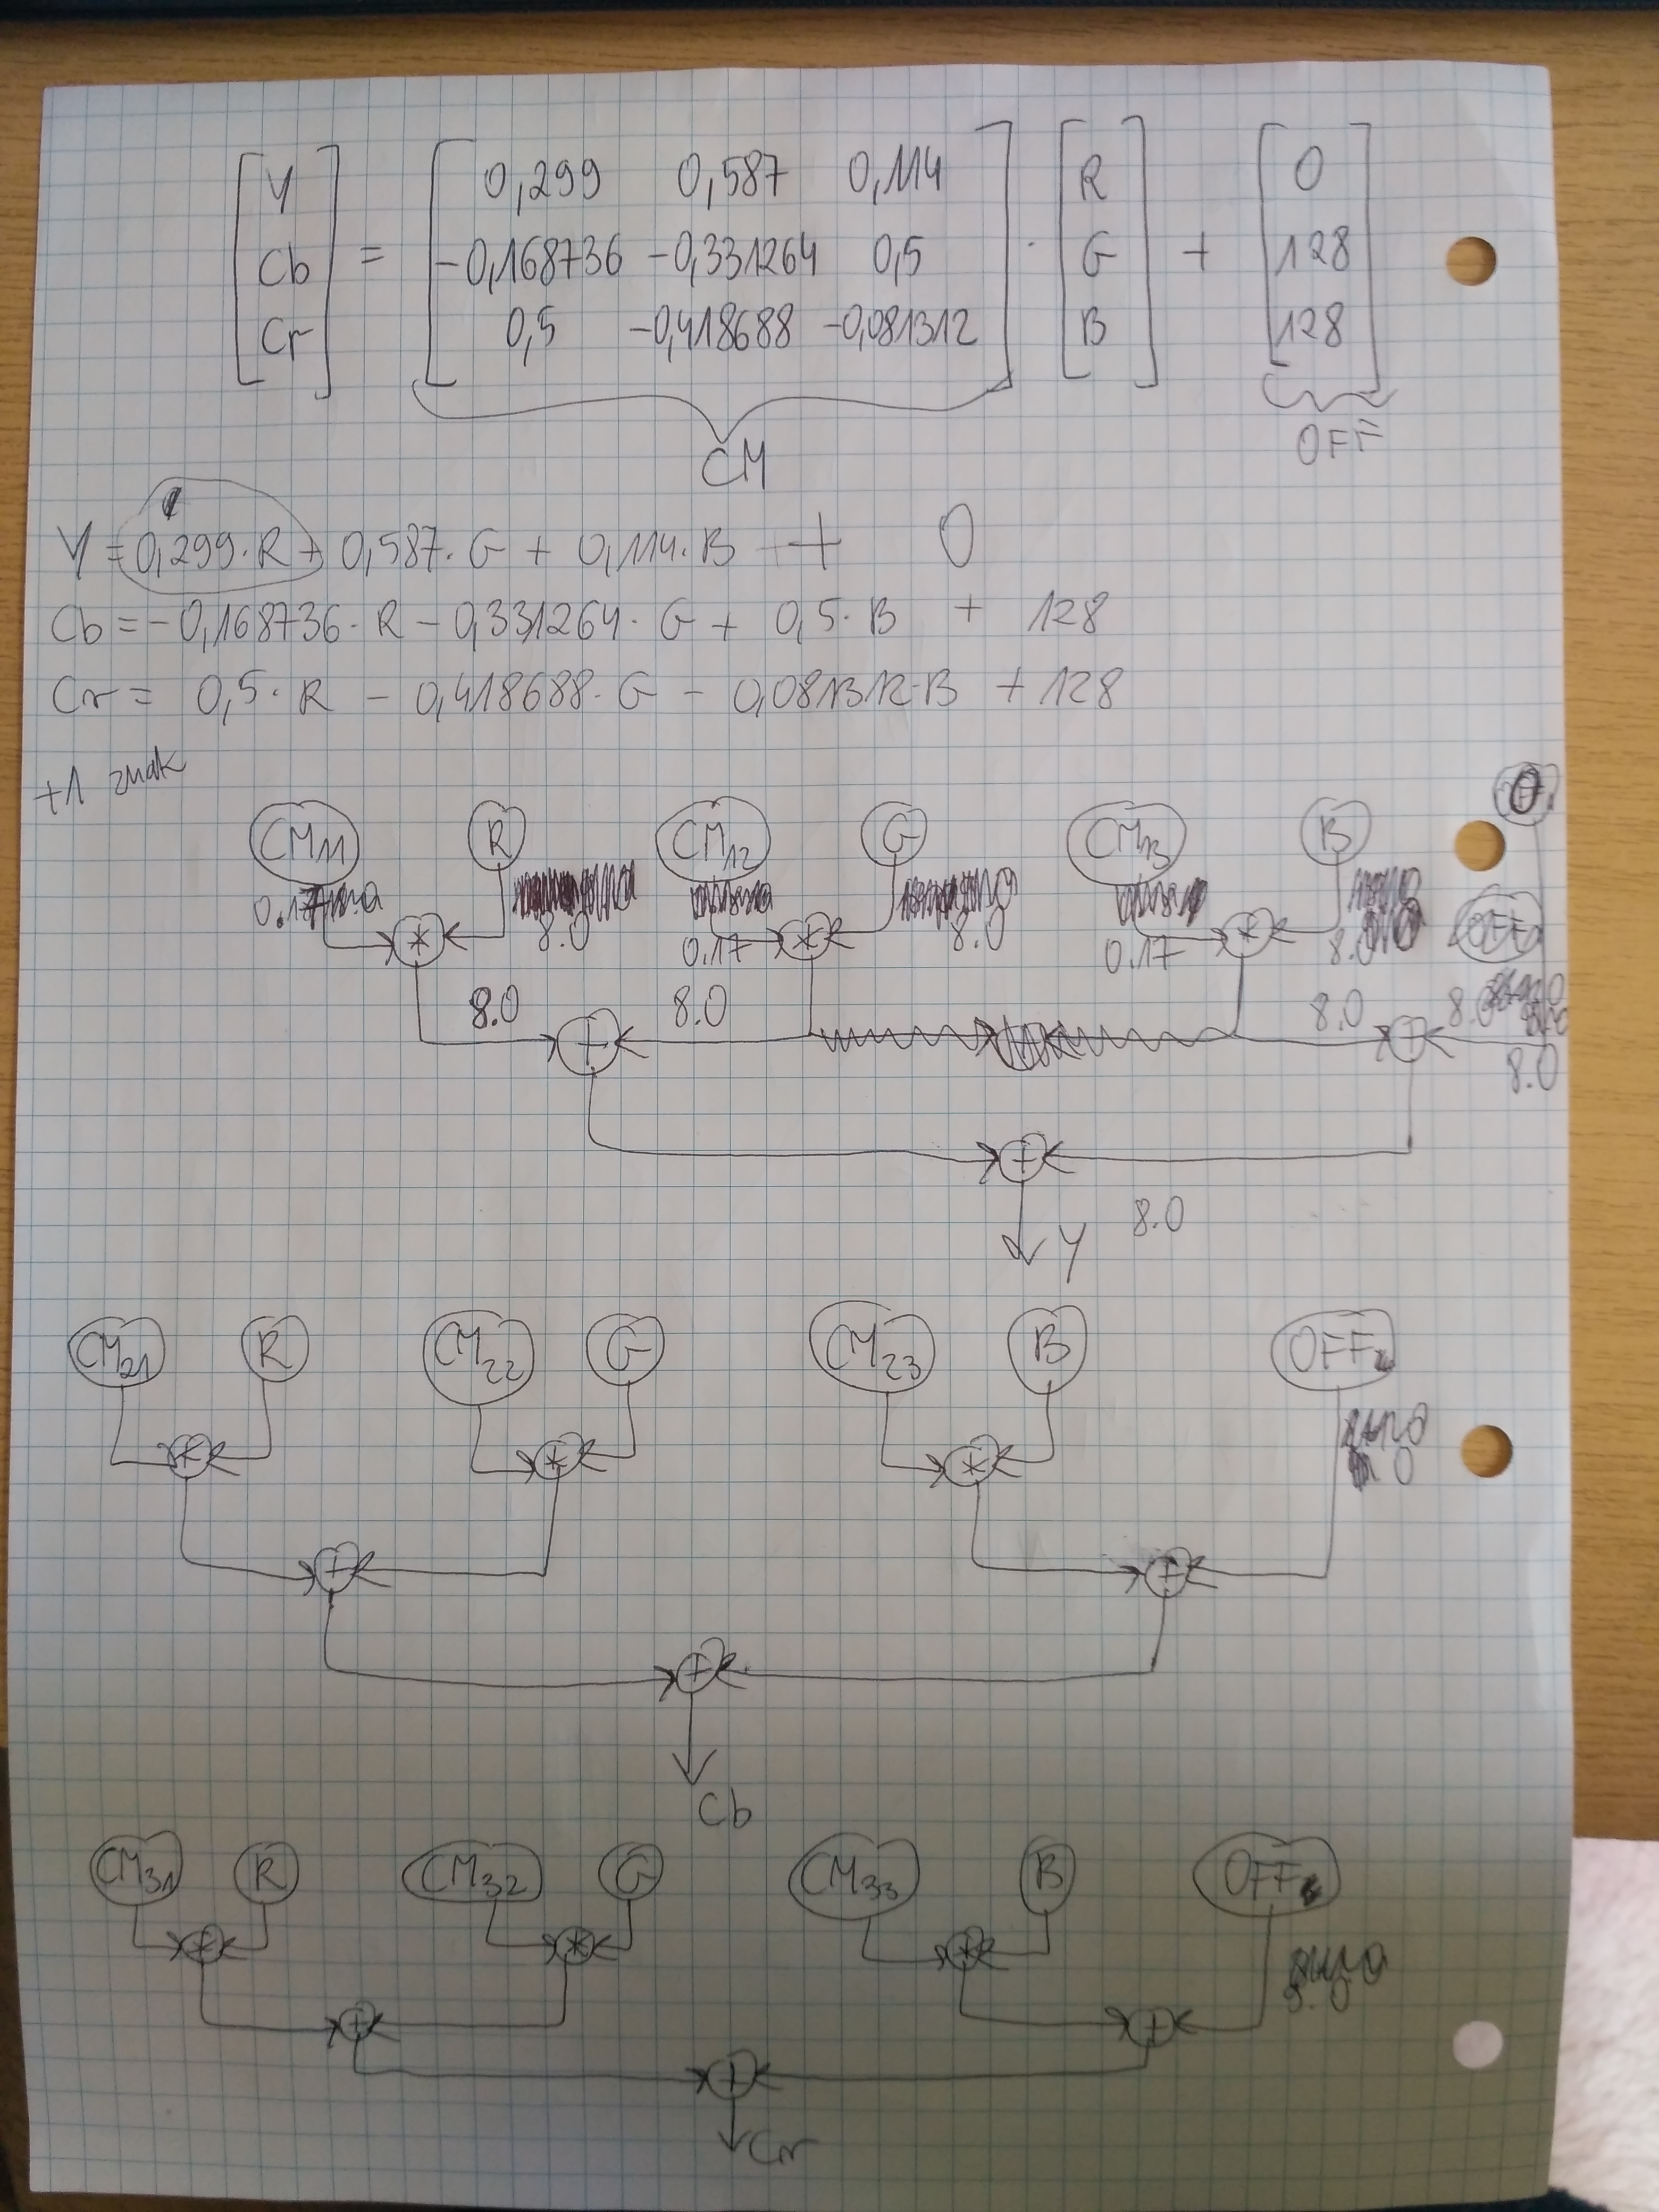 [Y Cb Cr] = [0,299 0,587 0,114
-0,168736 -0,331264 0,5
0,5 -0,418688 -0,081312] · [R G B] + [0 128 128]
CM OFF
Y = 0,299·R + 0,587·G + 0,114·B + 0
Cb = -0,168736·R - 0,331264·G + 0,5·B + 128
Cr = 0,5·R - 0,418688·G - 0,081312·B + 128
+1 znak
CM11 R CM12 G CM13 B 0
0.17 8.0 0.17 8.0 0.17 8.0
* * *
8.0 8.0 8.0 8.0
+ + 8.0
+
Y 8.0
CM21 R CM22 G CM23 B OFF
* * *
+ +
+
Cb
CM31 R CM32 G CM33 B OFF
* * * 8.0
+ +
+
Cr